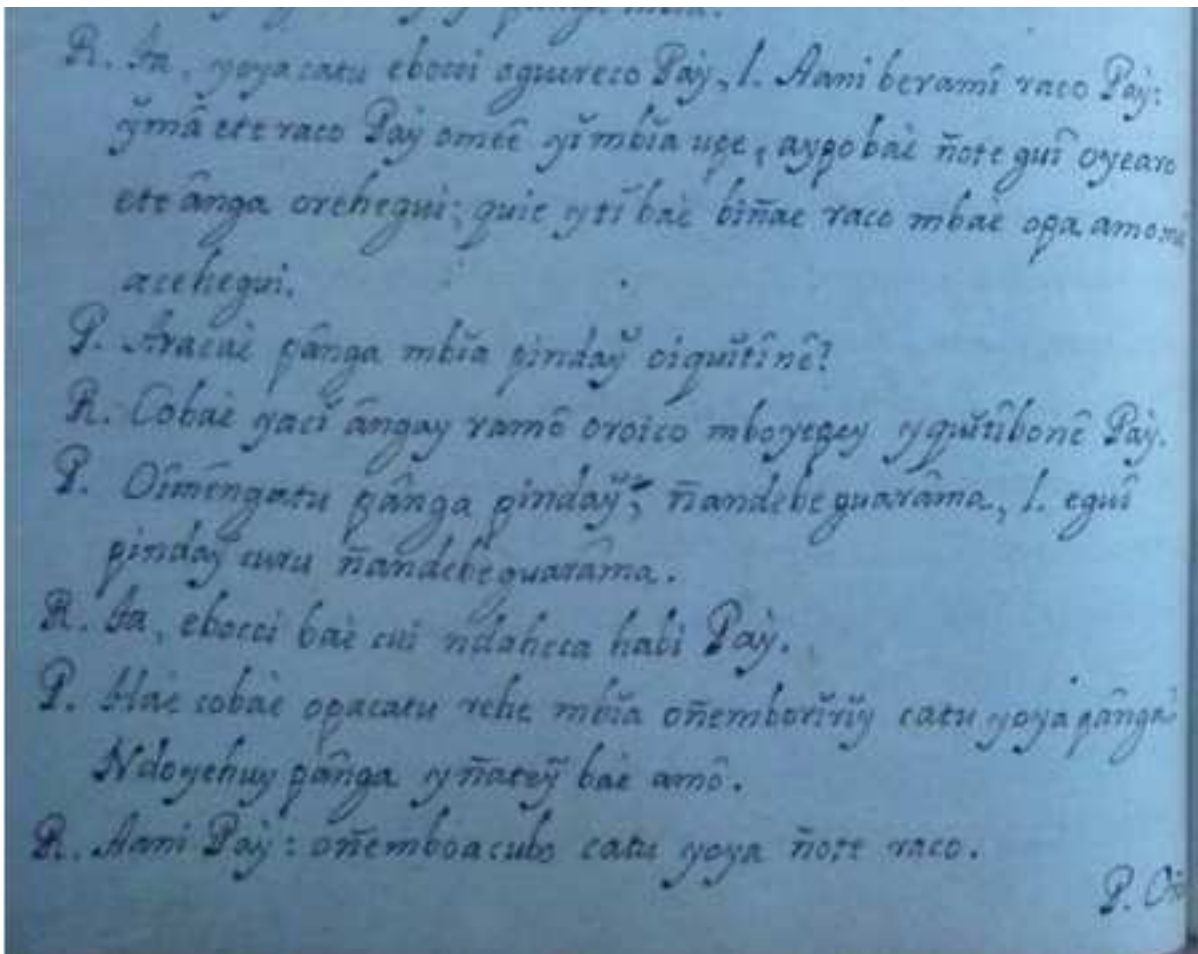 R. Ta, yoya catu ebocoi oguereco Paỳ, l. Aani beramî raco Paỳ:
ỹmâ ete raco Paỳ omeê yĭ mbĭa upe, aypobaè ñote guî oyearo
ete ânga orehegui; quie ytĭ baè biñae raco mbaè opa amomê
acehegui.
P. Aracaè pânga mbĭa pindaỹ oiquĭtînê?
R. Cobaè yacĭ ângay ramô oroico mboyepey yquĭtîbonê Paỳ.
P. Oîmêngatu pânga pindaỹ; ñandebeguarâma, l. eguî
pindaỹ curu ñandebeguarâma.
R. Ta, ebocoi baè cui ndaheca habi Paỳ.
P. Haè cobaè opacatu rehe mbĭa oñemborĭrĭy catu yoya pânga
Ndoyehuy pânga yñateỹ baè amô.
R. Aani Paỳ: oñemboacubo catu yoya ñote raco.